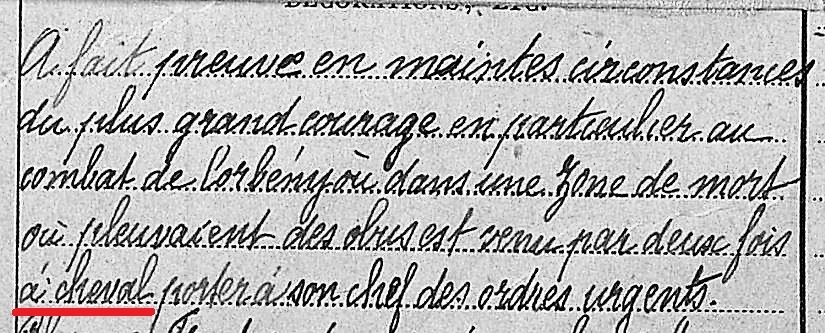 DECORATIONS, ETC.
A fait preuve en maintes circonstances
du plus grand courage en particulier au
combat de Corbény où dans une zone de mort
où pleuvaient des obus est venu par deux fois
à cheval porter à son chef des ordres urgents.